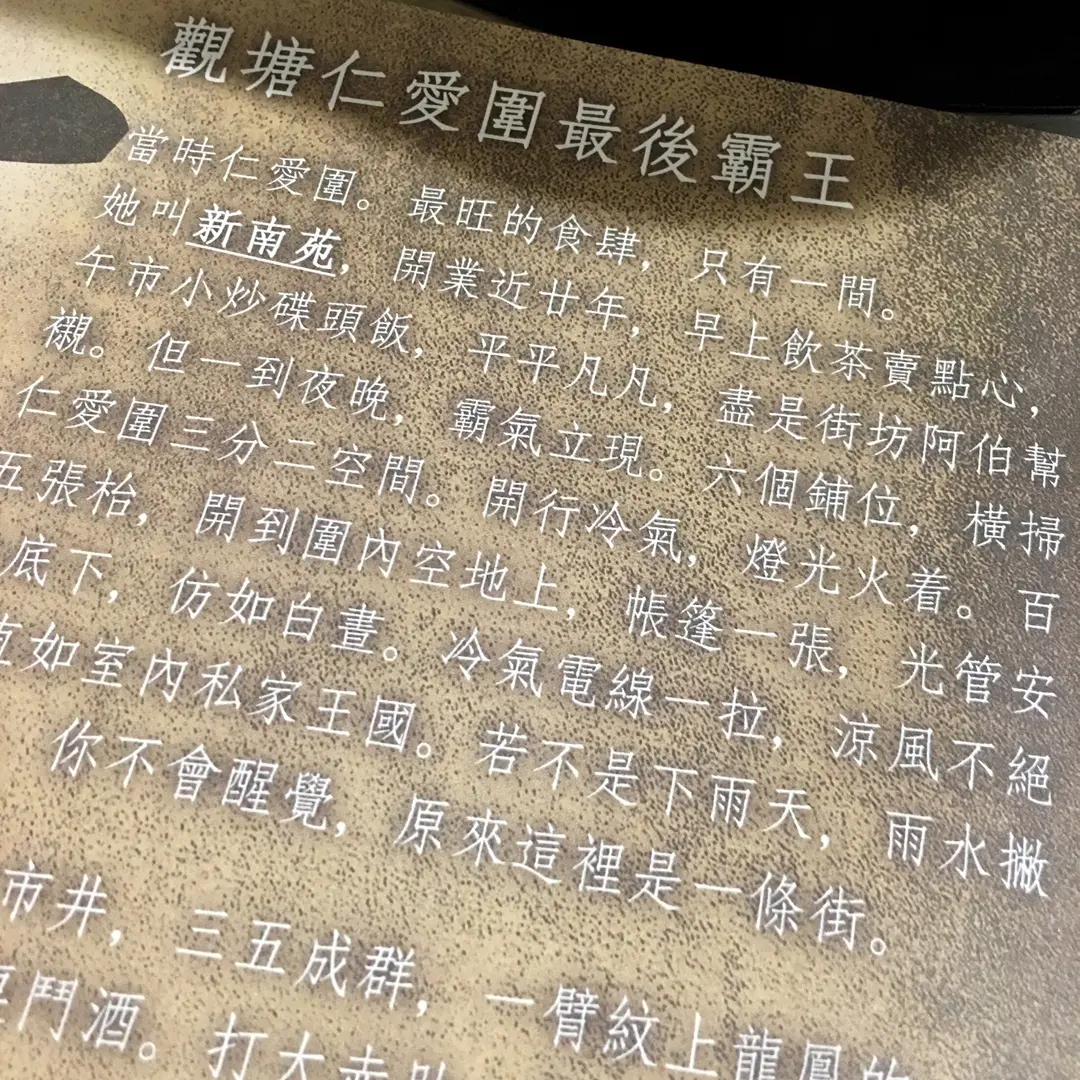 觀塘仁愛圍最後霸王
當時仁愛圍。最旺的食肆，只有一間。
她叫新南苑，開業近廿年，早上飲茶賣點心，
午市小炒碟頭飯，平平凡凡，盡是街坊阿伯幫
襯。但一到夜晚，霸氣立現。六個鋪位，橫掃
仁愛圍三分二空間。開行冷氣，燈光火着。百
五張枱，開到圍內空地上，帳篷一張，光管安
底下，仿如白晝。冷氣電線一拉，涼風不絕
如室內私家王國。若不是下雨天，雨水撇
你不會醒覺，原來這裡是一條街。
市井，三五成群，一臂紋上龍鳳的
鬥酒。打大赤